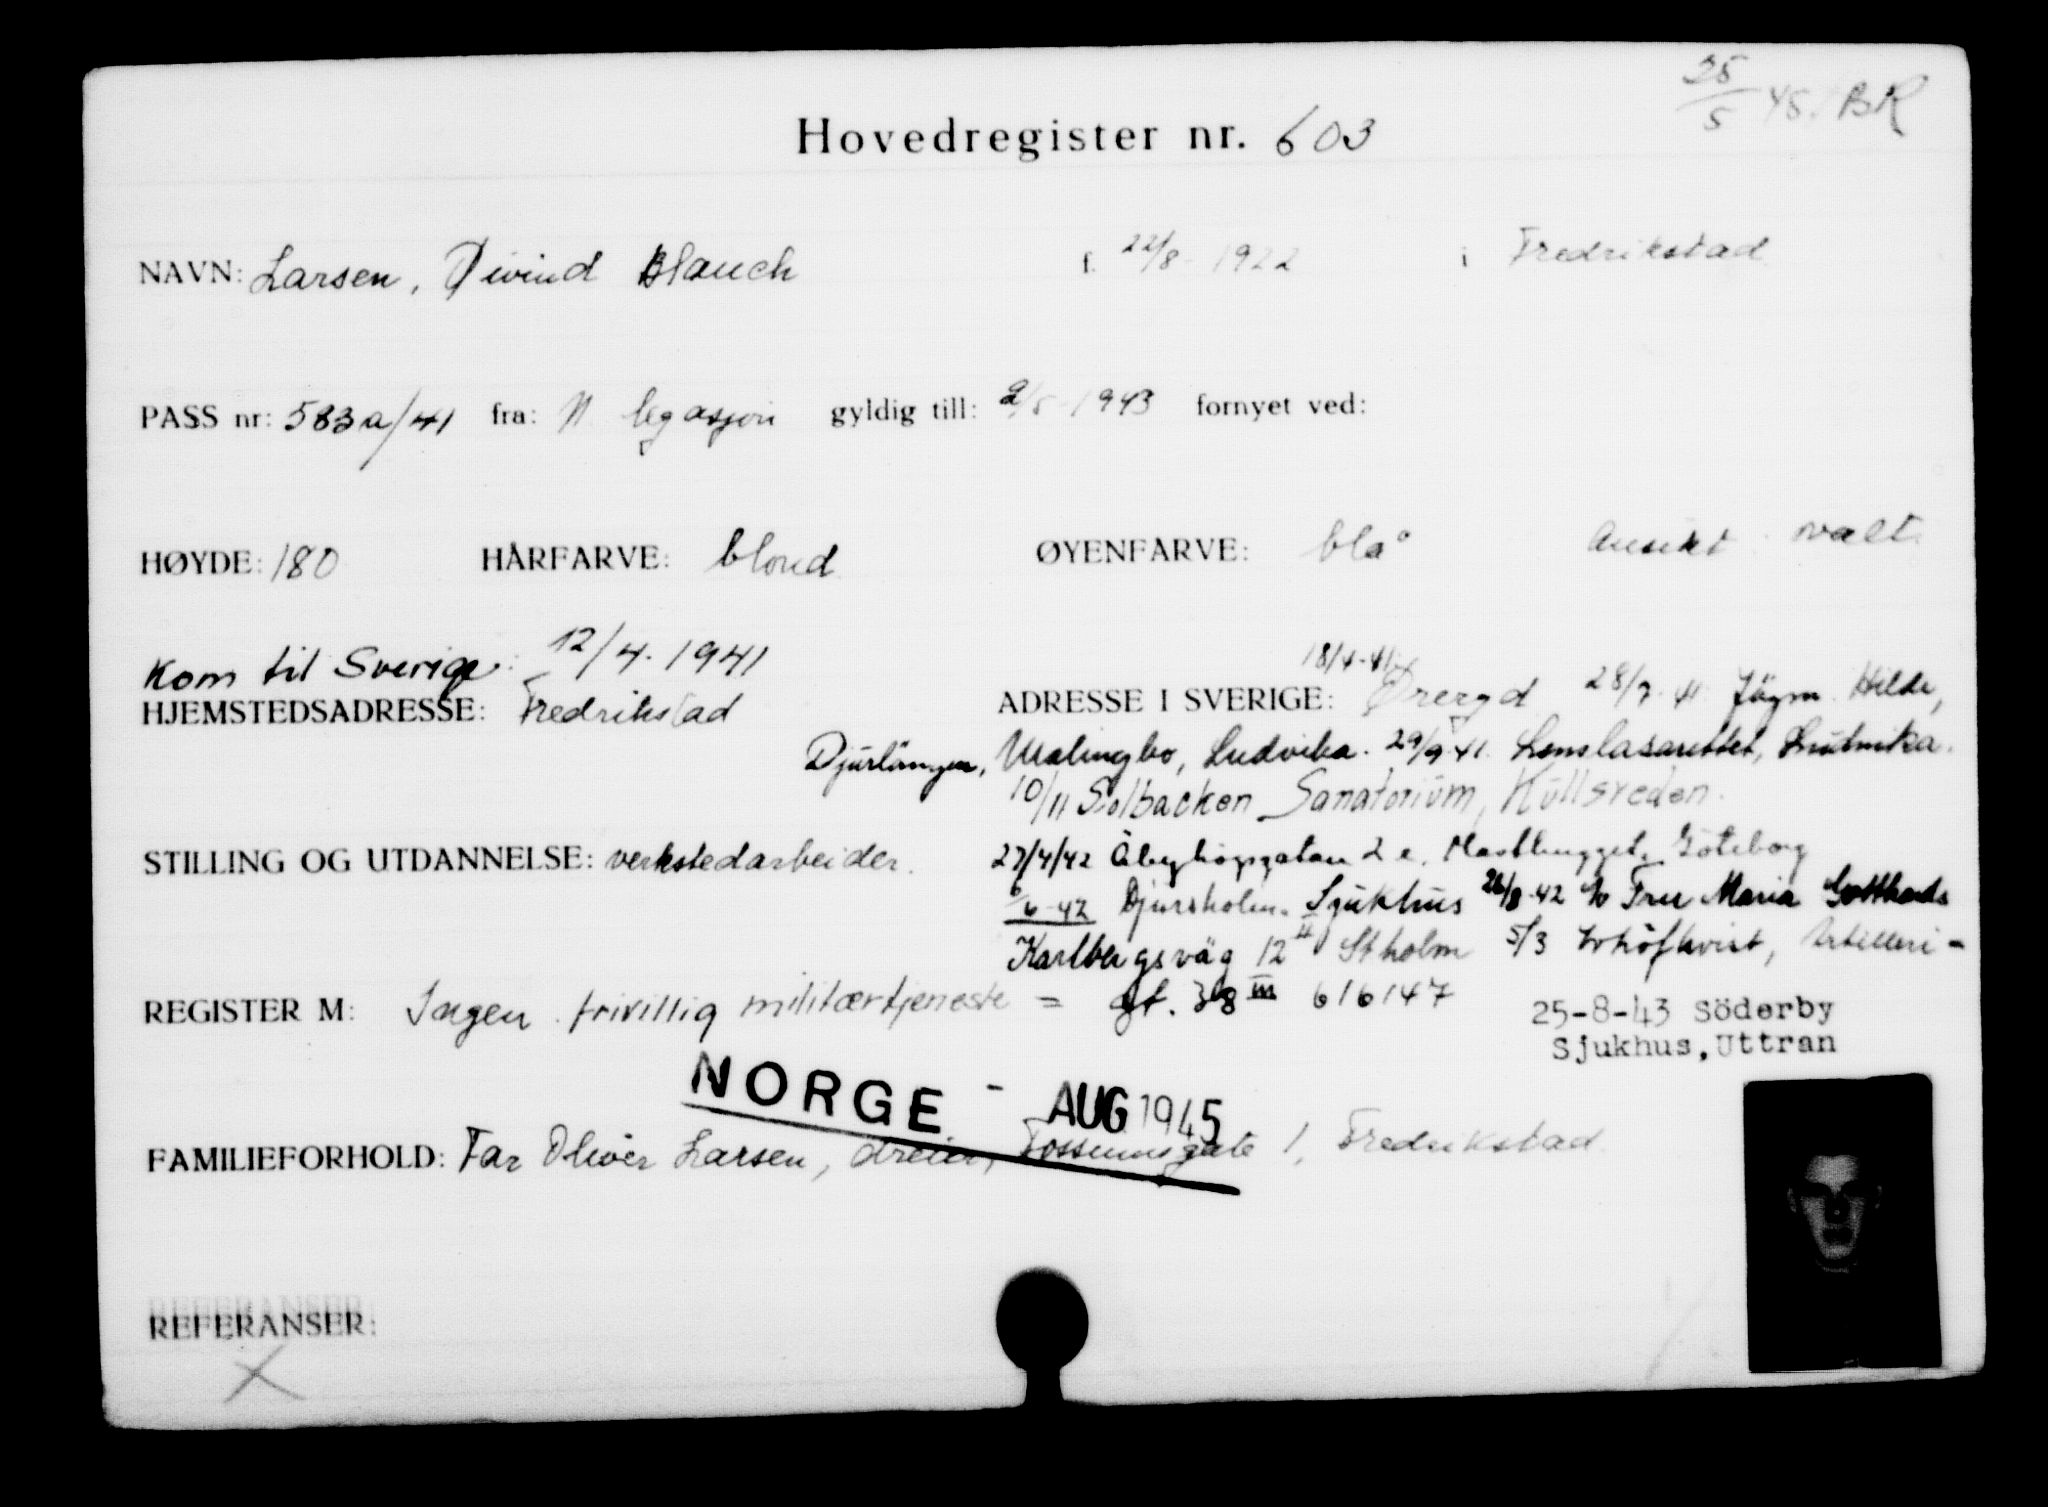 25/5 45. BR
Hovedregister nr. 603
NAVN: Larsen, Øivind Blauch f. 22/8 - 1922 i Fredrikstad
PASS nr: 583a/41 fra: N. legasjon gyldig till: 2/5 - 1943 fornyet ved:
HØYDE: 180 HÅRFARVE: blond ØYENFARVE: blå Ansikt ovalt
Kom til Sverige: 12/4. 1941
18/4-41
HJEMSTEDSADRESSE: Fredrikstad ADRESSE I SVERIGE: Øreryd 28/7-41 Jägm. Hilde,
Djurlången, Ludvika. 29/9 41. Lenslasarettet, Ludvika.
10/11 Solbacken Sanatorium, Hällsredon.
STILLING OG UTDANNELSE: verkstedarbeider. 27/4/42 2 c, Masthugget, Göteborg
6-42 Djursholm. Sjukhus 26/8-42 c/o Fru Maria Gotthards
Karlbergsväg 12 II Stholm 5/3 Artilleri-
REGISTER M: Ingen frivillig militærtjeneste = gt. 38 III 616147
25-8-43 Söderby
Sjukhus, Uttran
NORGE - AUG 1945
FAMILIEFORHOLD: Far Oliver Larsen, dreier, Fossumsgate 1, Fredrikstad.
REFERANSER:
X